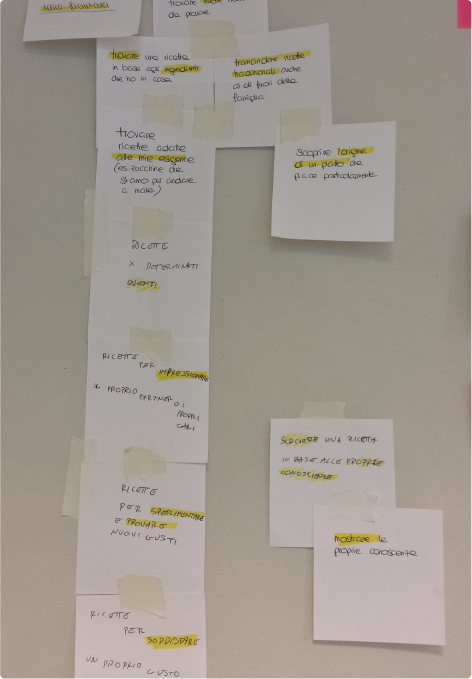 trovare
da piatto
trovare una ricetta
in base agli ingredienti
che ho in casa
tramandare ricette
tradizionali anche
al di fuori della
famiglia
trovare
ricette adatte
alle mie esigenze
(es. zucchine che
stanno per andare
a male)
scoprire l'origine
di un piatto che
piace particolarmente
RICETTE
X DETERMINATI
EVENTI
RICETTE
PER IMPRESSIONARE
IL PROPRIO
PARTNER O I
PROPRI
CARI
SCEGLIERE UNA RICETTA
IN BASE ALLE PROPRIE
CONOSCENZE
RICETTE
PER SPERIMENTARE
E PROVARE
NUOVI GUSTI
mostrare le
proprie conoscenze
RICETTE
PER
SODDISFARE
UN PROPRIO GUSTO